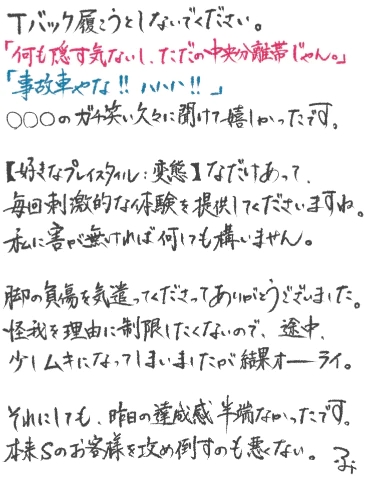 Tバック履こうとしないでください。
「何も隠す気ないし、ただの中央分離帯じゃん。」
「事故車やな!! ハハハ!!」
○○○のガチ笑い久々に聞けて嬉しかったです。
【好きなプレイスタイル:変態】なだけあって、
毎回刺激的な体験を提供してくださいますね。
私に害が無ければ何しても構いません。
脚の負傷を気遣ってくださってありがとうございました。
怪我を理由に制限したくないので、途中、
少しムキになってしまいましたが結果オーライ。
それにしても、昨日の達成感半端なかったです。
本来Sのお客様を攻め倒すのも悪くない。